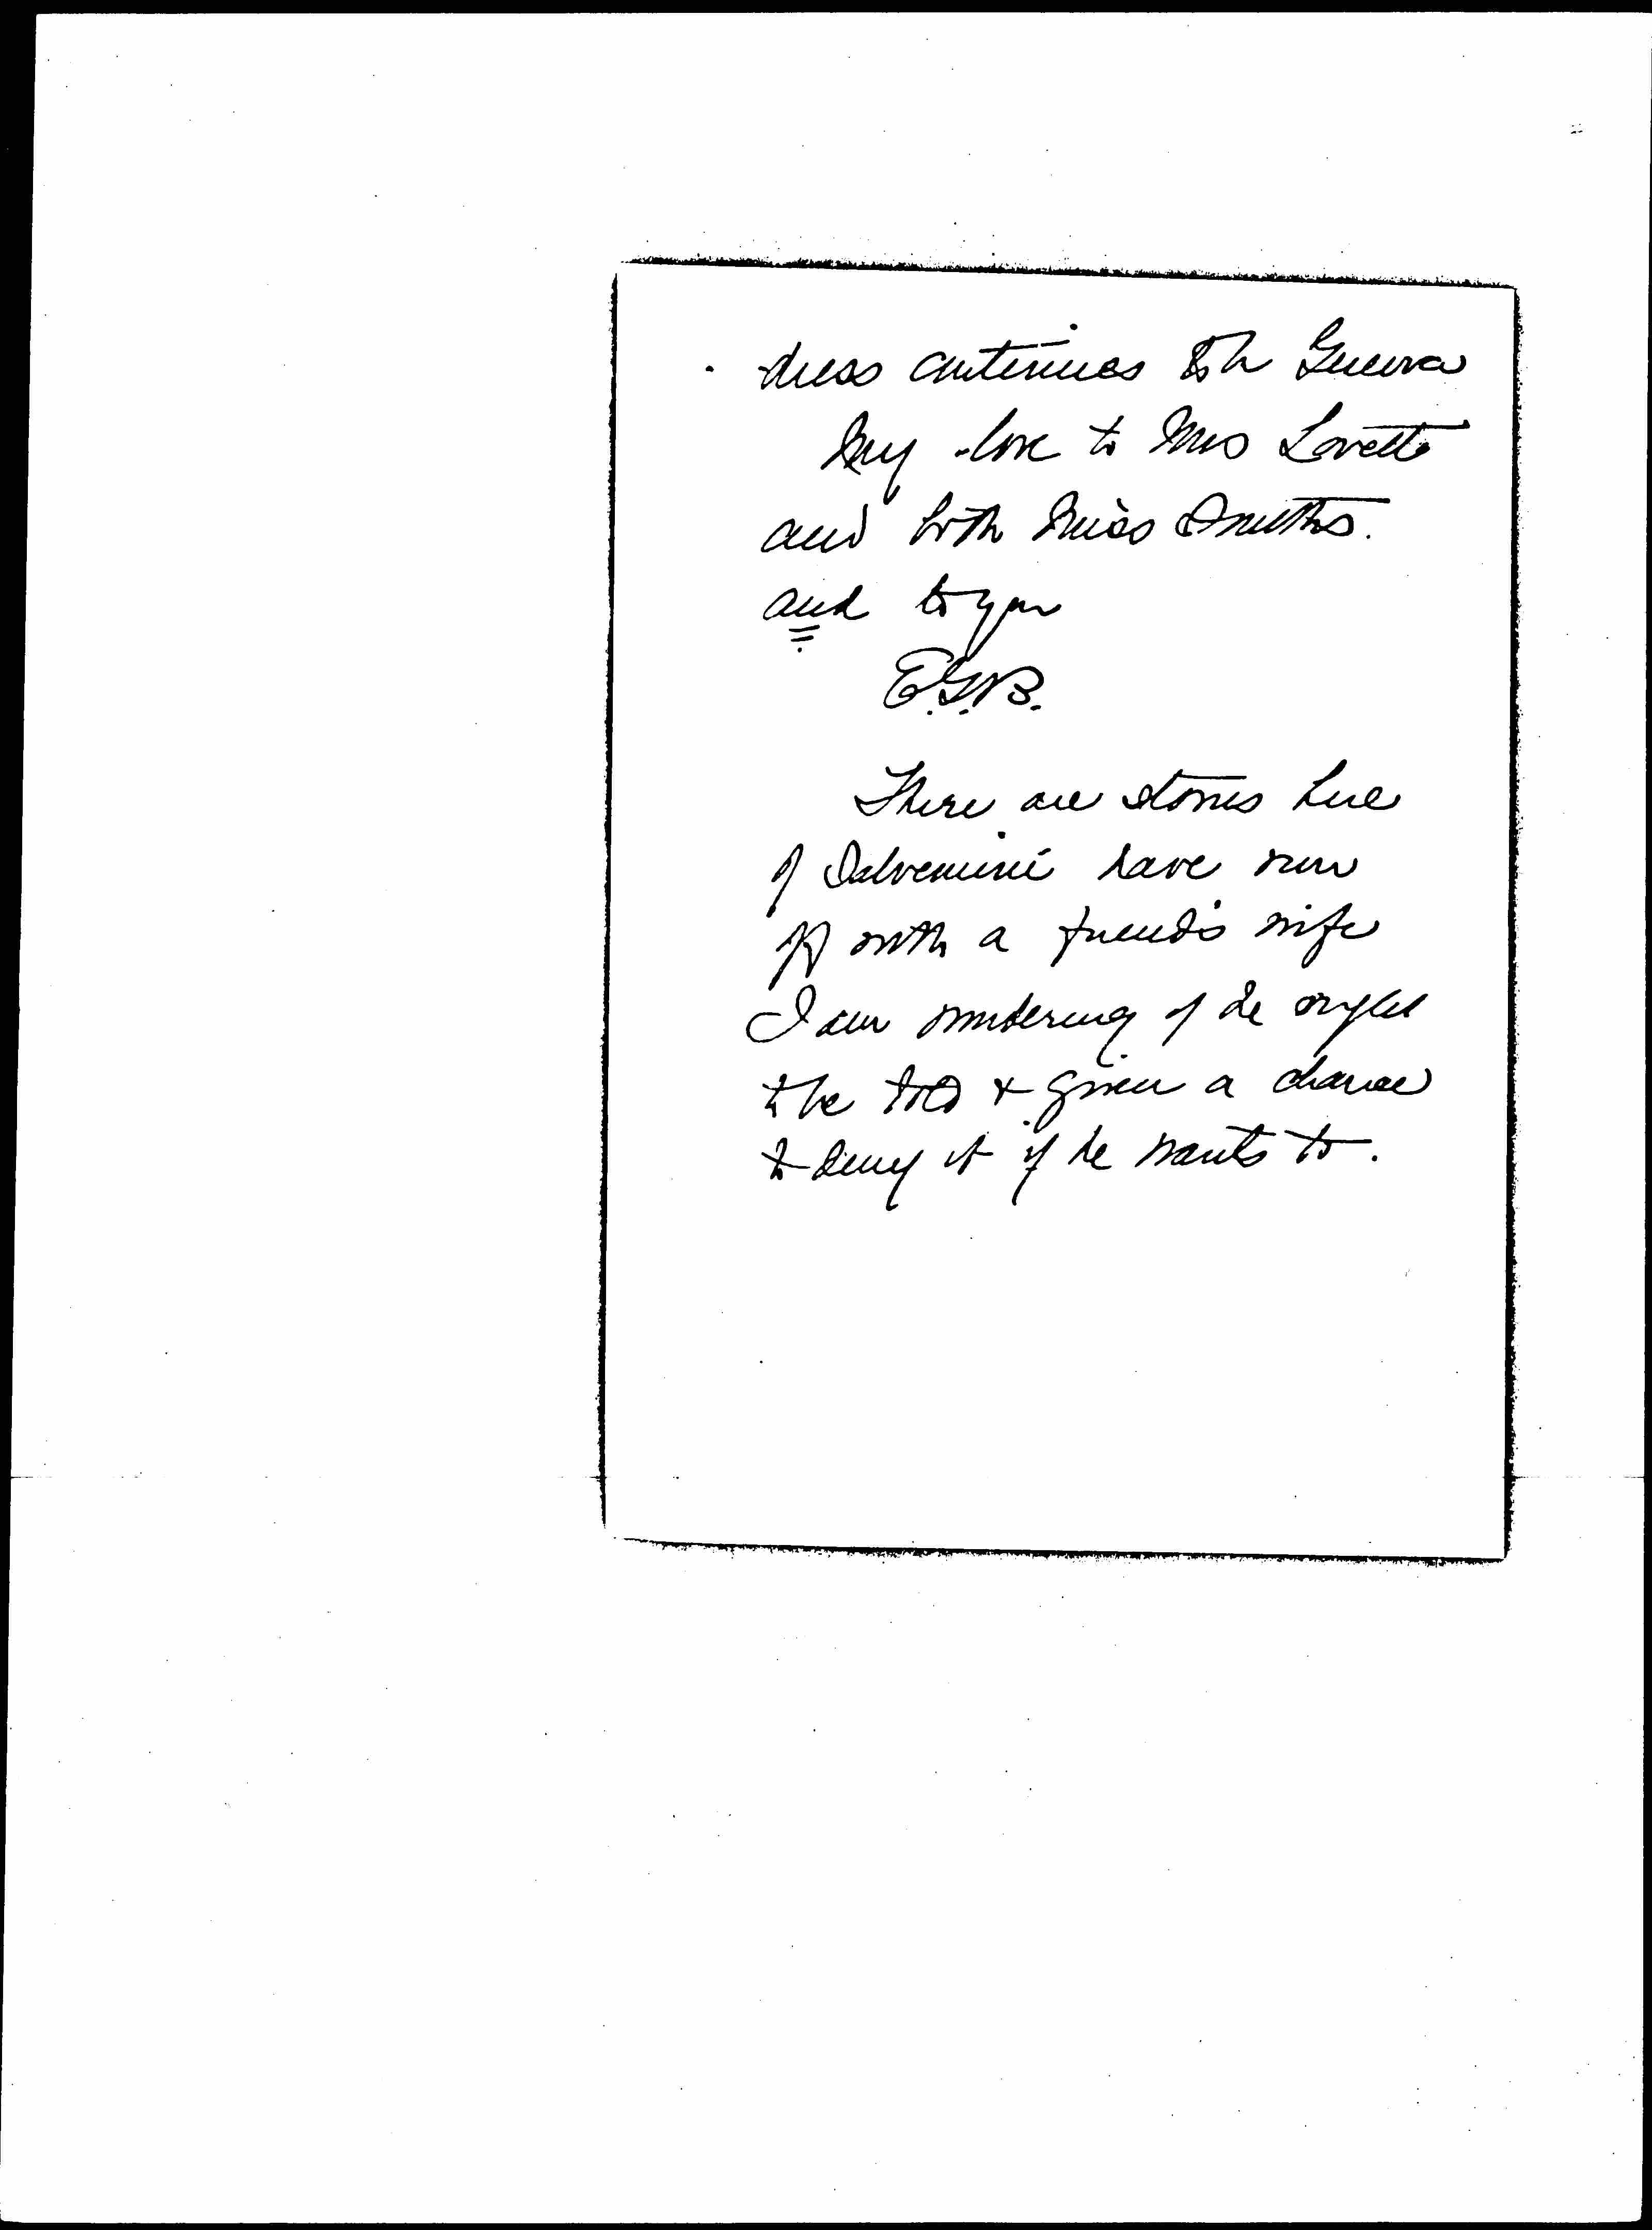 dress continues to be Geneva
My love to Mrs Lovett
and both Miss Smiths.
and to you
E.G.B.
There are stories here
of Salvemini have run
off with a friend's wife
I am wondering if he ought
to be told & given a chance
to deny it if he wants to.